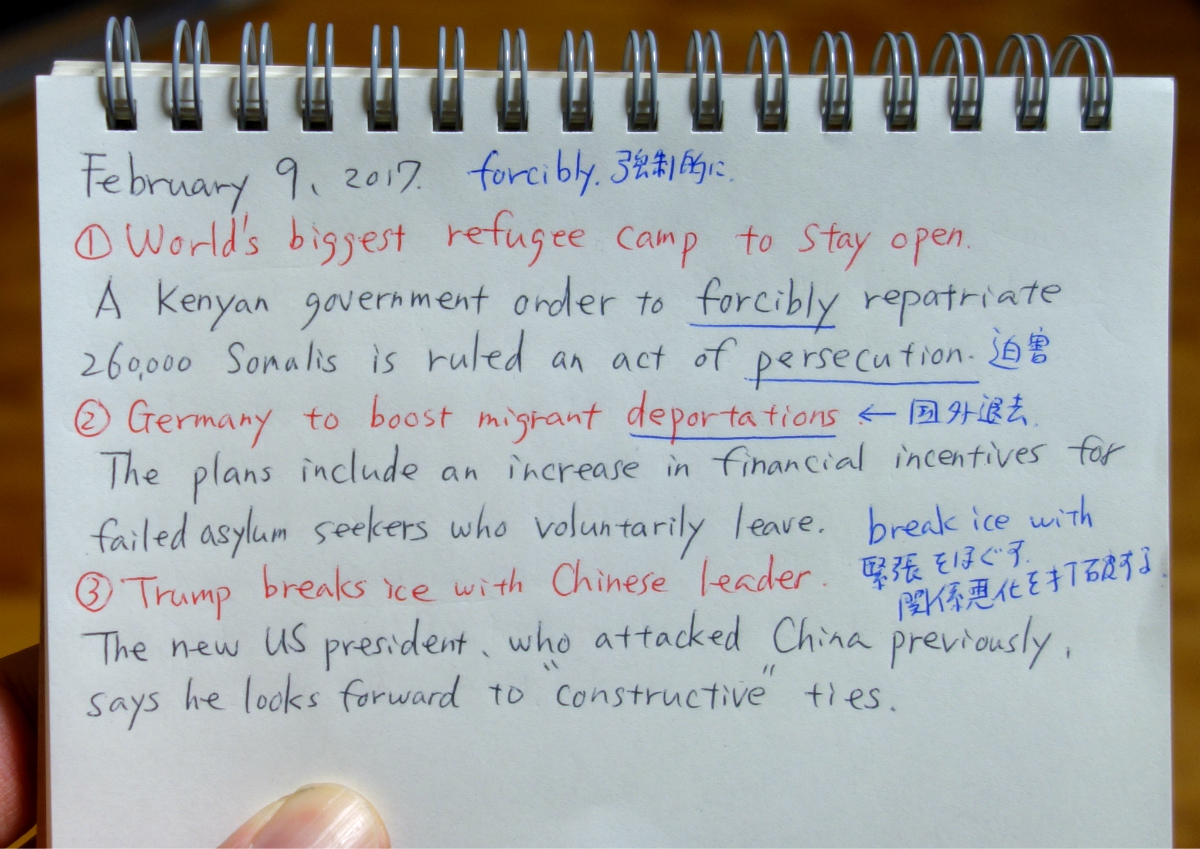 February 9, 2017. forcibly. 強制的に.
① World's biggest refugee camp to stay open.
A Kenyan government order to forcibly repatriate
260,000 Somalis is ruled an act of persecution. 迫害
② Germany to boost migrant deportations ← 国外退去.
The plans include an increase in financial incentives for
failed asylum seekers who voluntarily leave. break ice with
緊張をほぐす.
③ Trump breaks ice with Chinese leader. 関係悪化を打破する.
The new US president, who attacked China previously,
says he looks forward to "constructive" ties.